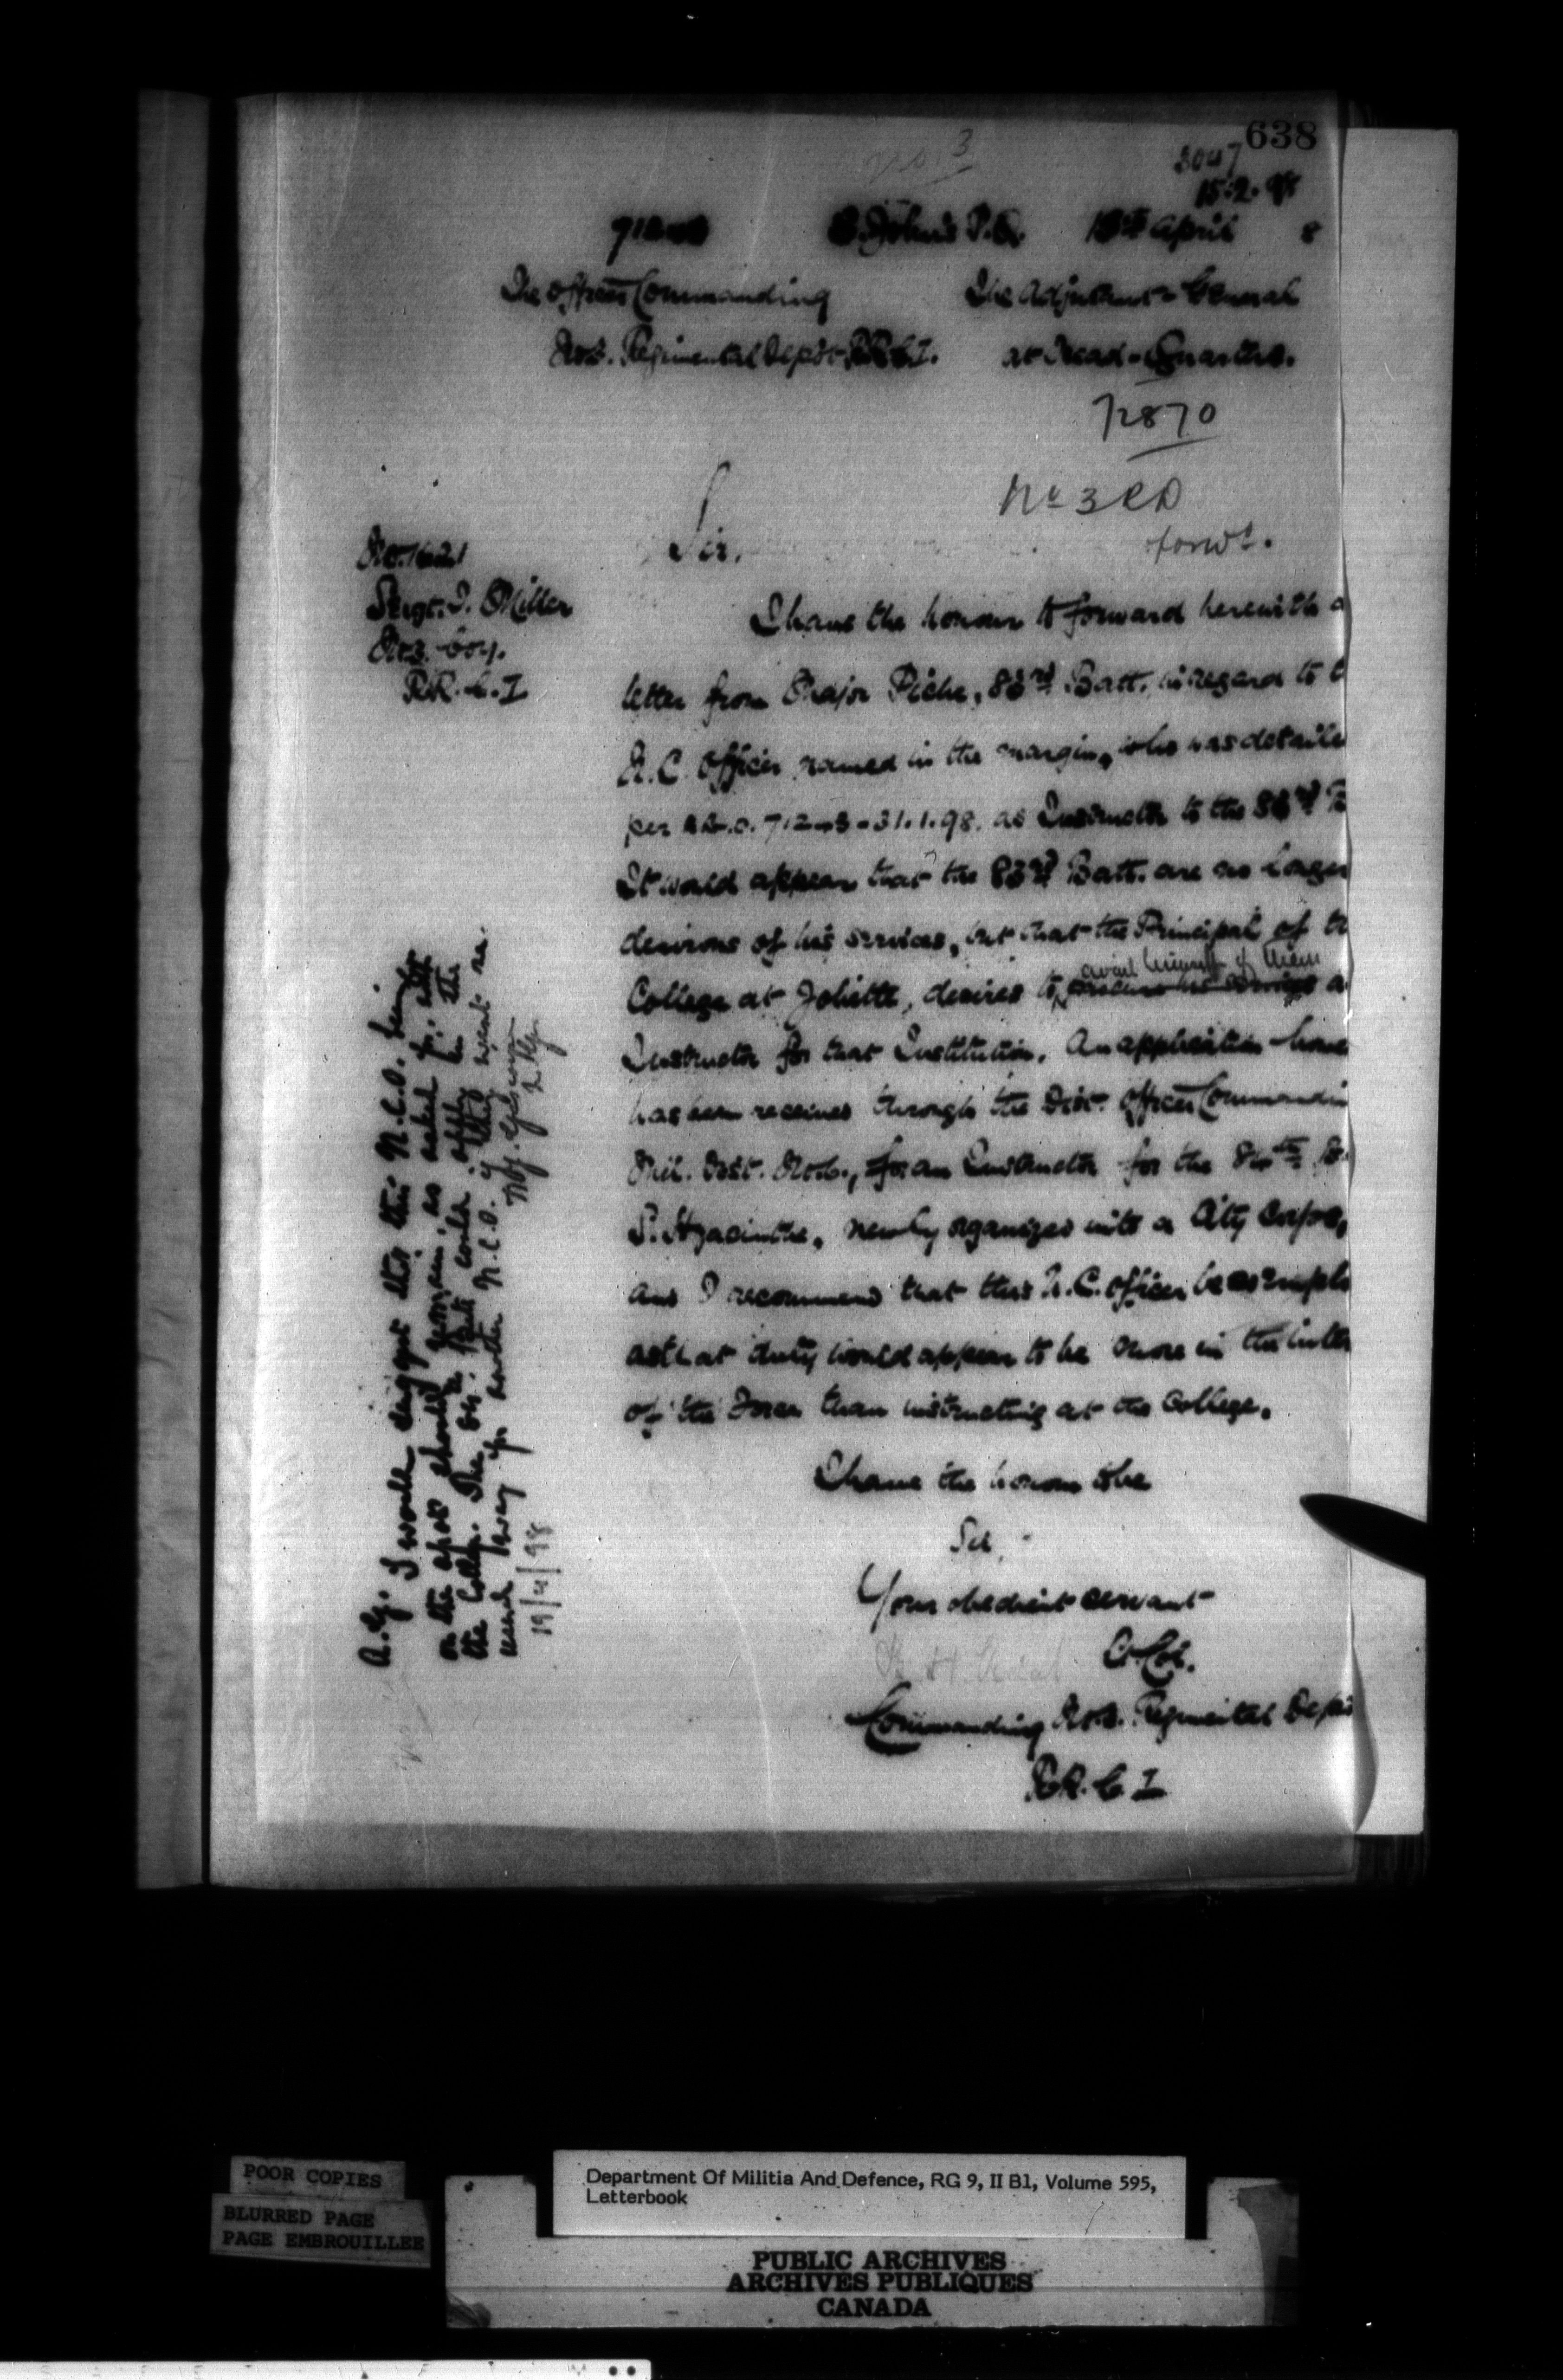 638
No. 3
3047
15.2.98
St. Johns P.Q. 18th April 8
The Officer Commanding
No 3. Regimental Depôt R.R.C.I.
The Adjutant General
at Head-Quarters.
72870
No 3 RD
forwd.
No. 1621
Sergt. J. Miller
No 3. Coy.
R.R.C.I
Sir,
I have the honour to forward herewith a
letter from Major Piché, 83rd Batt. in regard to t
N.C. Officer named in the margin, who was detaile
per 31.1.98. as Instructor to the 83rd B
It would appear that the 83rd Batt. are no longer
desirous of his services, but that the Principal of th
College at Joliette, desires to avail himself of them
procure his services a
Instructor for that Institution. An application
has been received through the Dist. Officer Commandin
Mil. Dist. No 6., for an Instructor for the 84th B.
St. Hyacinthe, newly organized into a City Corps,
and I recommend that this N.C. Officer be so emplo
as that duty would appear to be more in the inte
of the Force than instructing at the College.
I have the honour to be
Sir,
Your obedient servant
Lt Col.
Commanding No 3. Regimental Depô
R.R.C.I
A.G. I would suggest that this N.C.O. being
on the spot should remain, as asked for, at
the College. The 84th Batt. could apply in the
usual way for another N.C.O. if they want one.
19/4/98
POOR COPIES
BLURRED PAGE
PAGE EMBROUILLEE
Department Of Militia And Defence, RG 9, II B1, Volume 595,
Letterbook
PUBLIC ARCHIVES
ARCHIVES PUBLIQUES
CANADA